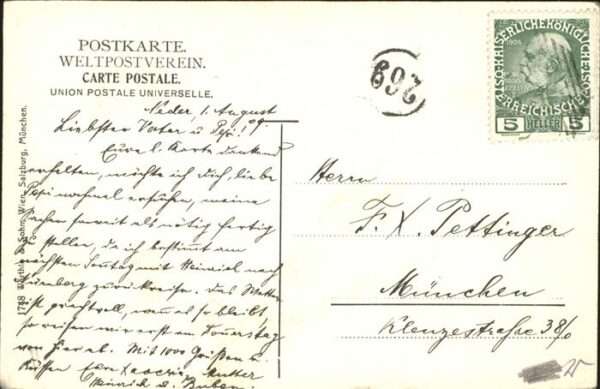 POSTKARTE.
WELTPOSTVEREIN.
CARTE POSTALE.
UNION POSTALE UNIVERSELLE.
269
KAISERLICHE KÖNIGLICHE
ÖSTERREICHISCHE
5 HELLER 5
Sohn, Wien, Salzburg, München.
1788
1. August 09.
Liebster Vater u Pepi!
Eure l. Karte dankend
erhalten, möchte ich Dich, liebe
Pepi nochmal ersuchen, meine
Sachen soweit als nötig fertig
zu stellen, da ich bestimmt am
nächsten Sonntag mit Heinrich nach
Nürnberg zurückreise. Das Wetter
ist prachtvoll, wenn es so bleibt
so reisen wir erst am Donnerstag
von hier ab. Mit 1000 Grüßen u
Küssen Mutter
Heinrich u. Buben.
Herrn
F. X. Pettinger
München
Klenzestraße 38/0